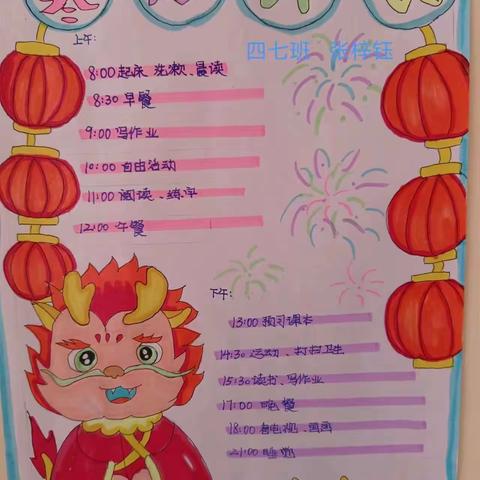 上午:
四七班 张梓钰
8:00起床、洗漱、晨读
8:30早餐
9:00写作业
10:00自由活动
11:00阅读、练字
12:00午餐
下午:
13:00预习课本
14:30运动、打扫卫生
15:30读书、写作业
17:00晚餐
18:00看电视、画画
21:00睡觉